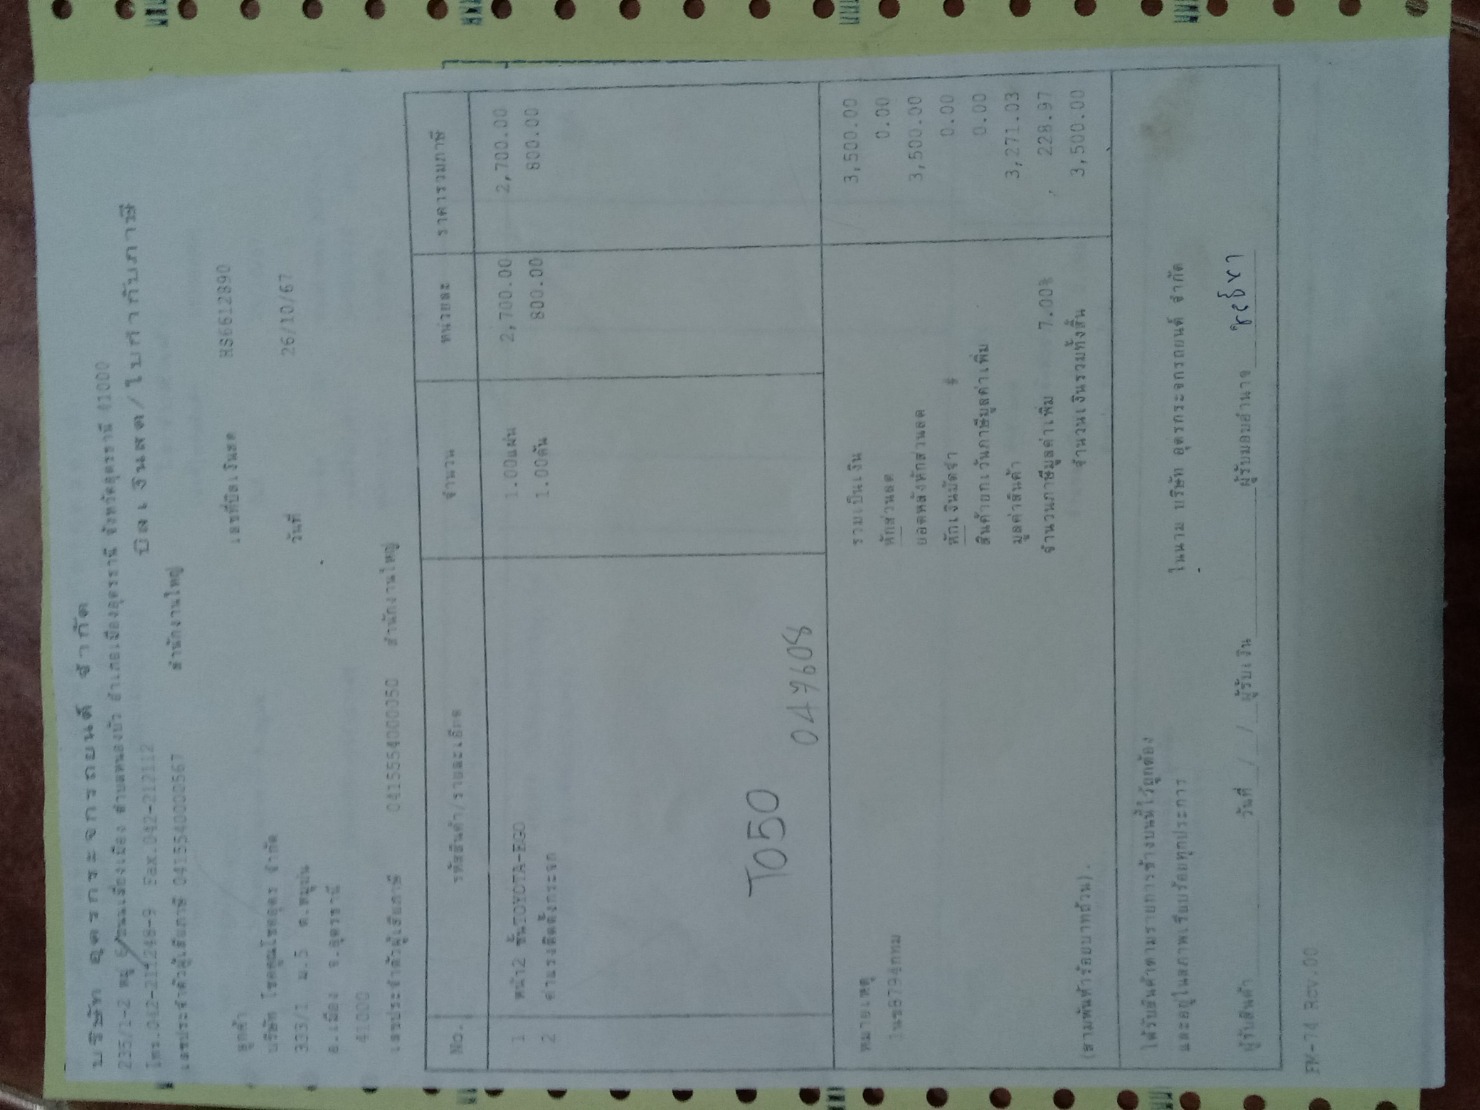 บริษัท อุดรกระจกรถยนต์ จำกัด
235/1-2 หมู่ 6 ถนนเลี่ยงเมือง ตำบลหนองบัว อำเภอเมืองอุดรธานี จังหวัดอุดรธานี 41000
โทร.042-211248-9 Fax.042-217112 บิลเงินสด/ใบกำกับภาษี
เลขประจำตัวผู้เสียภาษี 0415540000567 สำนักงานใหญ่
ลูกค้า เลขที่บิลเงินสด HS6612890
บริษัท โชคคูณโชคอุดร จำกัด
333/1 ม.5 ต.หมูม่น วันที่ 26/10/67
อ.เมือง จ.อุดรธานี
41000
เลขประจำตัวผู้เสียภาษี 0415554000050 สำนักงานใหญ่
No. รหัสสินค้า/รายละเอียด จำนวน หน่วยละ ราคารวมภาษี
1 หน้า2 ชั้นTOYOTA-EGO 1.00แผ่น 2,700.00 2,700.00
2 ค่าแรงติดตั้งกระจก 1.00คัน 800.00 800.00
T050
047608
หมายเหตุ รวมเป็นเงิน 3,500.00
หักส่วนลด 0.00
ยอดหลังหักส่วนลด 3,500.00
หักเงินมัดจำ # 0.00
สินค้ายกเว้นภาษีมูลค่าเพิ่ม 0.00
มูลค่าสินค้า 3,271.03
จำนวนภาษีมูลค่าเพิ่ม 7.00% 228.97
(สามพันห้าร้อยบาทถ้วน). จำนวนเงินรวมทั้งสิ้น 3,500.00
ได้รับสินค้าตามรายการข้างบนนี้ไว้ถูกต้อง
และอยู่ในสภาพเรียบร้อยทุกประการ ในนาม บริษัท อุดรกระจกรถยนต์ จำกัด
ผู้รับสินค้า วันที่ / / ผู้รับเงิน ผู้รับมอบอำนาจ
FM-74 Rev.00